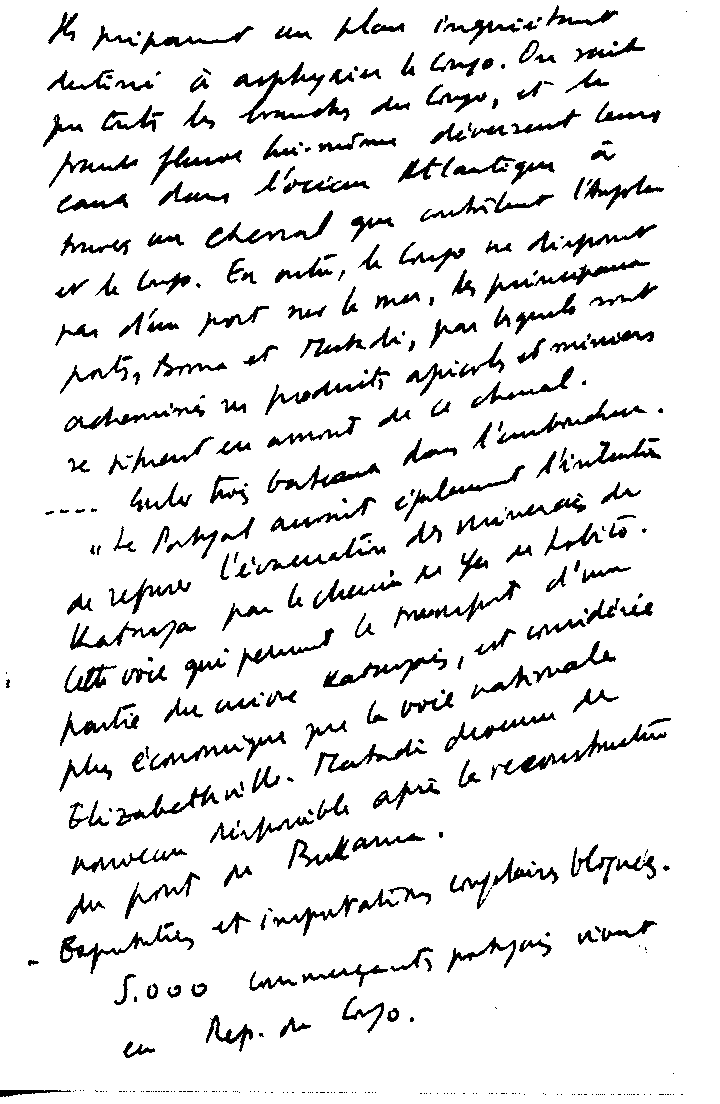 Ils préparent un plan inquiétant
destiné à asphyxier le Congo. On sait
que toutes les branches du Congo, et le
grand fleuve lui-même déversent leurs
eaux dans l'océan Atlantique à
travers un chenal que contrôlent l'Angola
et le Congo. En outre, le Congo ne disposant
pas d'un port sur la mer, les principaux
ports, Boma et Matadi, par lesquels sont
acheminés ses produits agricoles et miniers
se situent en amont de ce chenal.
---- Couler trois bateaux dans l'embouchure.
"Le Portugal aurait également l'intention
de refuser l'évacuation des minerais du
Katanga par le chemin de fer de Lobito.
Cette voie qui permet le transport d'une
partie du cuivre katangais, est considérée
plus économique que la voie nationale
Elizabethville-Matadi devenue de
nouveau disponible après la reconstruction
du pont de Bukama.
- Exportations et importations congolaises bloquées.
5.000 commerçants portugais vivent
en Rep. du Congo.